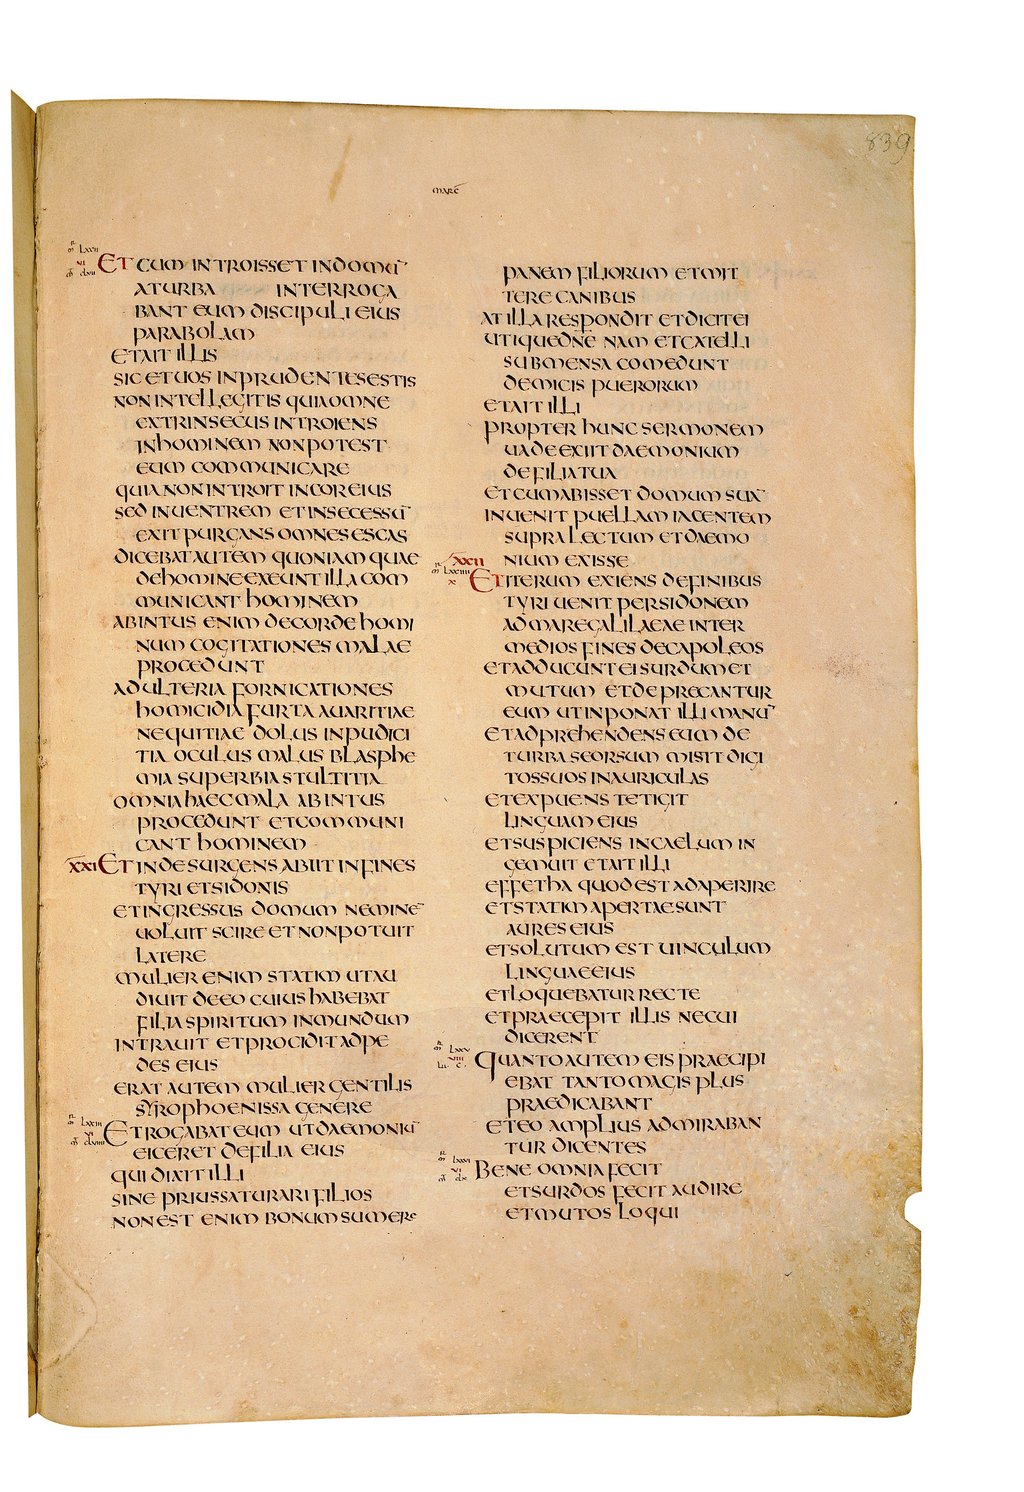 839
MARC
LXXII
VI
CLVII
ET CUM INTROISSET IN DOMŪ
A TURBA INTERROGA
BANT EUM DISCIPULI EIUS
PARABOLAM
ET AIT ILLIS
SIC ET UOS INPRUDENTES ESTIS
NON INTELLEGITIS QUIA OMNE
EXTRINSECUS INTROIENS
IN HOMINEM NON POTEST
EUM COMMUNICARE
QUIA NON INTROIT IN COR EIUS
SED IN UENTREM ET IN SECESSŪ
EXIT PURGANS OMNES ESCAS
DICEBAT AUTEM QUONIAM QUAE
DE HOMINE EXEUNT ILLA COM
MUNICANT HOMINEM
AB INTUS ENIM DE CORDE HOMI
NUM COGITATIONES MALAE
PROCEDUNT
ADULTERIA FORNICATIONES
HOMICIDIA FURTA AUARITIAE
NEQUITIAE DOLUS INPUDICI
TIA OCULUS MALUS BLASPHE
MIA SUPERBIA STULTITIA
OMNIA HAEC MALA AB INTUS
PROCEDUNT ET COMMUNI
CANT HOMINEM
XXI ET INDE SURGENS ABIIT IN FINES
TYRI ET SIDONIS
ET INGRESSUS DOMUM NEMINĒ
UOLUIT SCIRE ET NON POTUIT
LATERE
MULIER ENIM STATIM UT AU
DIUIT DE EO CUIUS HABEBAT
FILIA SPIRITUM INMUNDUM
INTRAUIT ET PROCIDIT AD PE
DES EIUS
ERAT AUTEM MULIER GENTILIS
SYROPHOENISSA GENERE
LXXIII
VI
CLVIIII
ET ROGABAT EUM UT DAEMONIŪ
EICERET DE FILIA EIUS
QUI DIXIT ILLI
SINE PRIUS SATURARI FILIOS
NON EST ENIM BONUM SUMERE
PANEM FILIORUM ET MIT
TERE CANIBUS
AT ILLA RESPONDIT ET DICIT EI
UTIQUE DNE NAM ET CATELLI
SUB MENSA COMEDUNT
DE MICIS PUERORUM
ET AIT ILLI
PROPTER HUNC SERMONEM
UADE EXIIT DAEMONIUM
DE FILIA TUA
ET CUM ABISSET DOMUM SUĀ
INUENIT PUELLAM IACENTEM
SUPRA LECTUM ET DAEMO
NIUM EXISSE
XXII
LXXIIII
X
ET ITERUM EXIENS DE FINIBUS
TYRI UENIT PER SIDONEM
AD MARE GALILAEAE INTER
MEDIOS FINES DECAPOLEOS
ET ADDUCUNT EI SURDUM ET
MUTUM ET DEPRECANTUR
EUM UT INPONAT ILLI MANŪ
ET ADPREHENDENS EUM DE
TURBA SEORSUM MISIT DIGI
TOS SUOS IN AURICULAS
ET EXPUENS TETIGIT
LINGUAM EIUS
ET SUSPICIENS IN CAELUM IN
GEMUIT ET AIT ILLI
EFFETHA QUOD EST ADAPERIRE
ET STATIM APERTAE SUNT
AURES EIUS
ET SOLUTUM EST UINCULUM
LINGUAE EIUS
ET LOQUEBATUR RECTE
ET PRAECEPIT ILLIS NE CUI
DICERENT
LXXV
VIII
LU C
QUANTO AUTEM EIS PRAECIPI
EBAT TANTO MAGIS PLUS
PRAEDICABANT
ET EO AMPLIUS ADMIRABAN
TUR DICENTES
LXXVI
VI
CLX
BENE OMNIA FECIT
ET SURDOS FECIT AUDIRE
ET MUTOS LOQUI